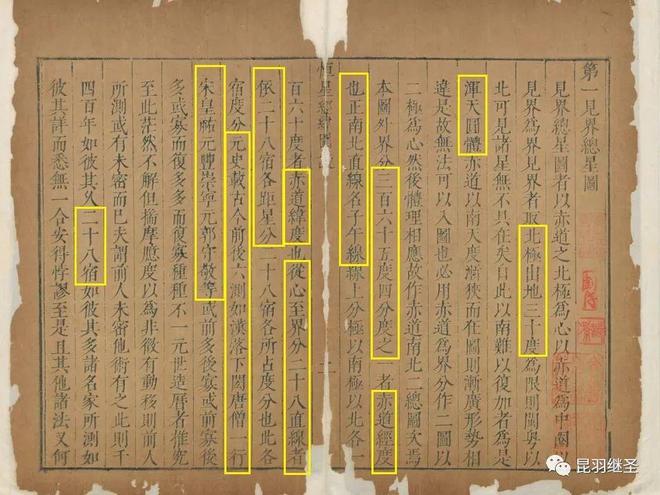 第一見界總星圖
見界總星圖者以赤道之北極為心以赤道為中圈
見界為界見界者取北極出地三十度為限則閩粤以
北可見諸星無不具在矣自此以南難以復加者為是
渾天圓體赤道以南天度漸狹而在圖則漸廣形勢相
違是故無法可以入圖也必用赤道為界分作二圖以
二極為心然後體理相應故作赤道南北二總圖次焉
本圖外界分三百六十五度四分度之一者赤道經度
也正南北直線名子午線線上分極以南極以北各一
恒星總
百六十度者赤道緯度也從心至界分二十八直線者
依二十八宿各距星分二十八宿各所占度分也此各
宿度分元史載古今前後六測如漢落下閎唐僧一行
宋皇祐元豐崇寧元郭守敬等或前多後寡或前寡後
多或寡而復多多而復寡種種不一元世造曆者推究
至此茫然不解但揣摩臆度以為非微有動移則前人
所測或有未密而已夫謂前人未密他術有之此則千
四百年如彼其久二十八宿如彼其多諸名家所測如
彼其詳而悉無一合安得悖謬至是且其他諸法又何
昆羽继圣